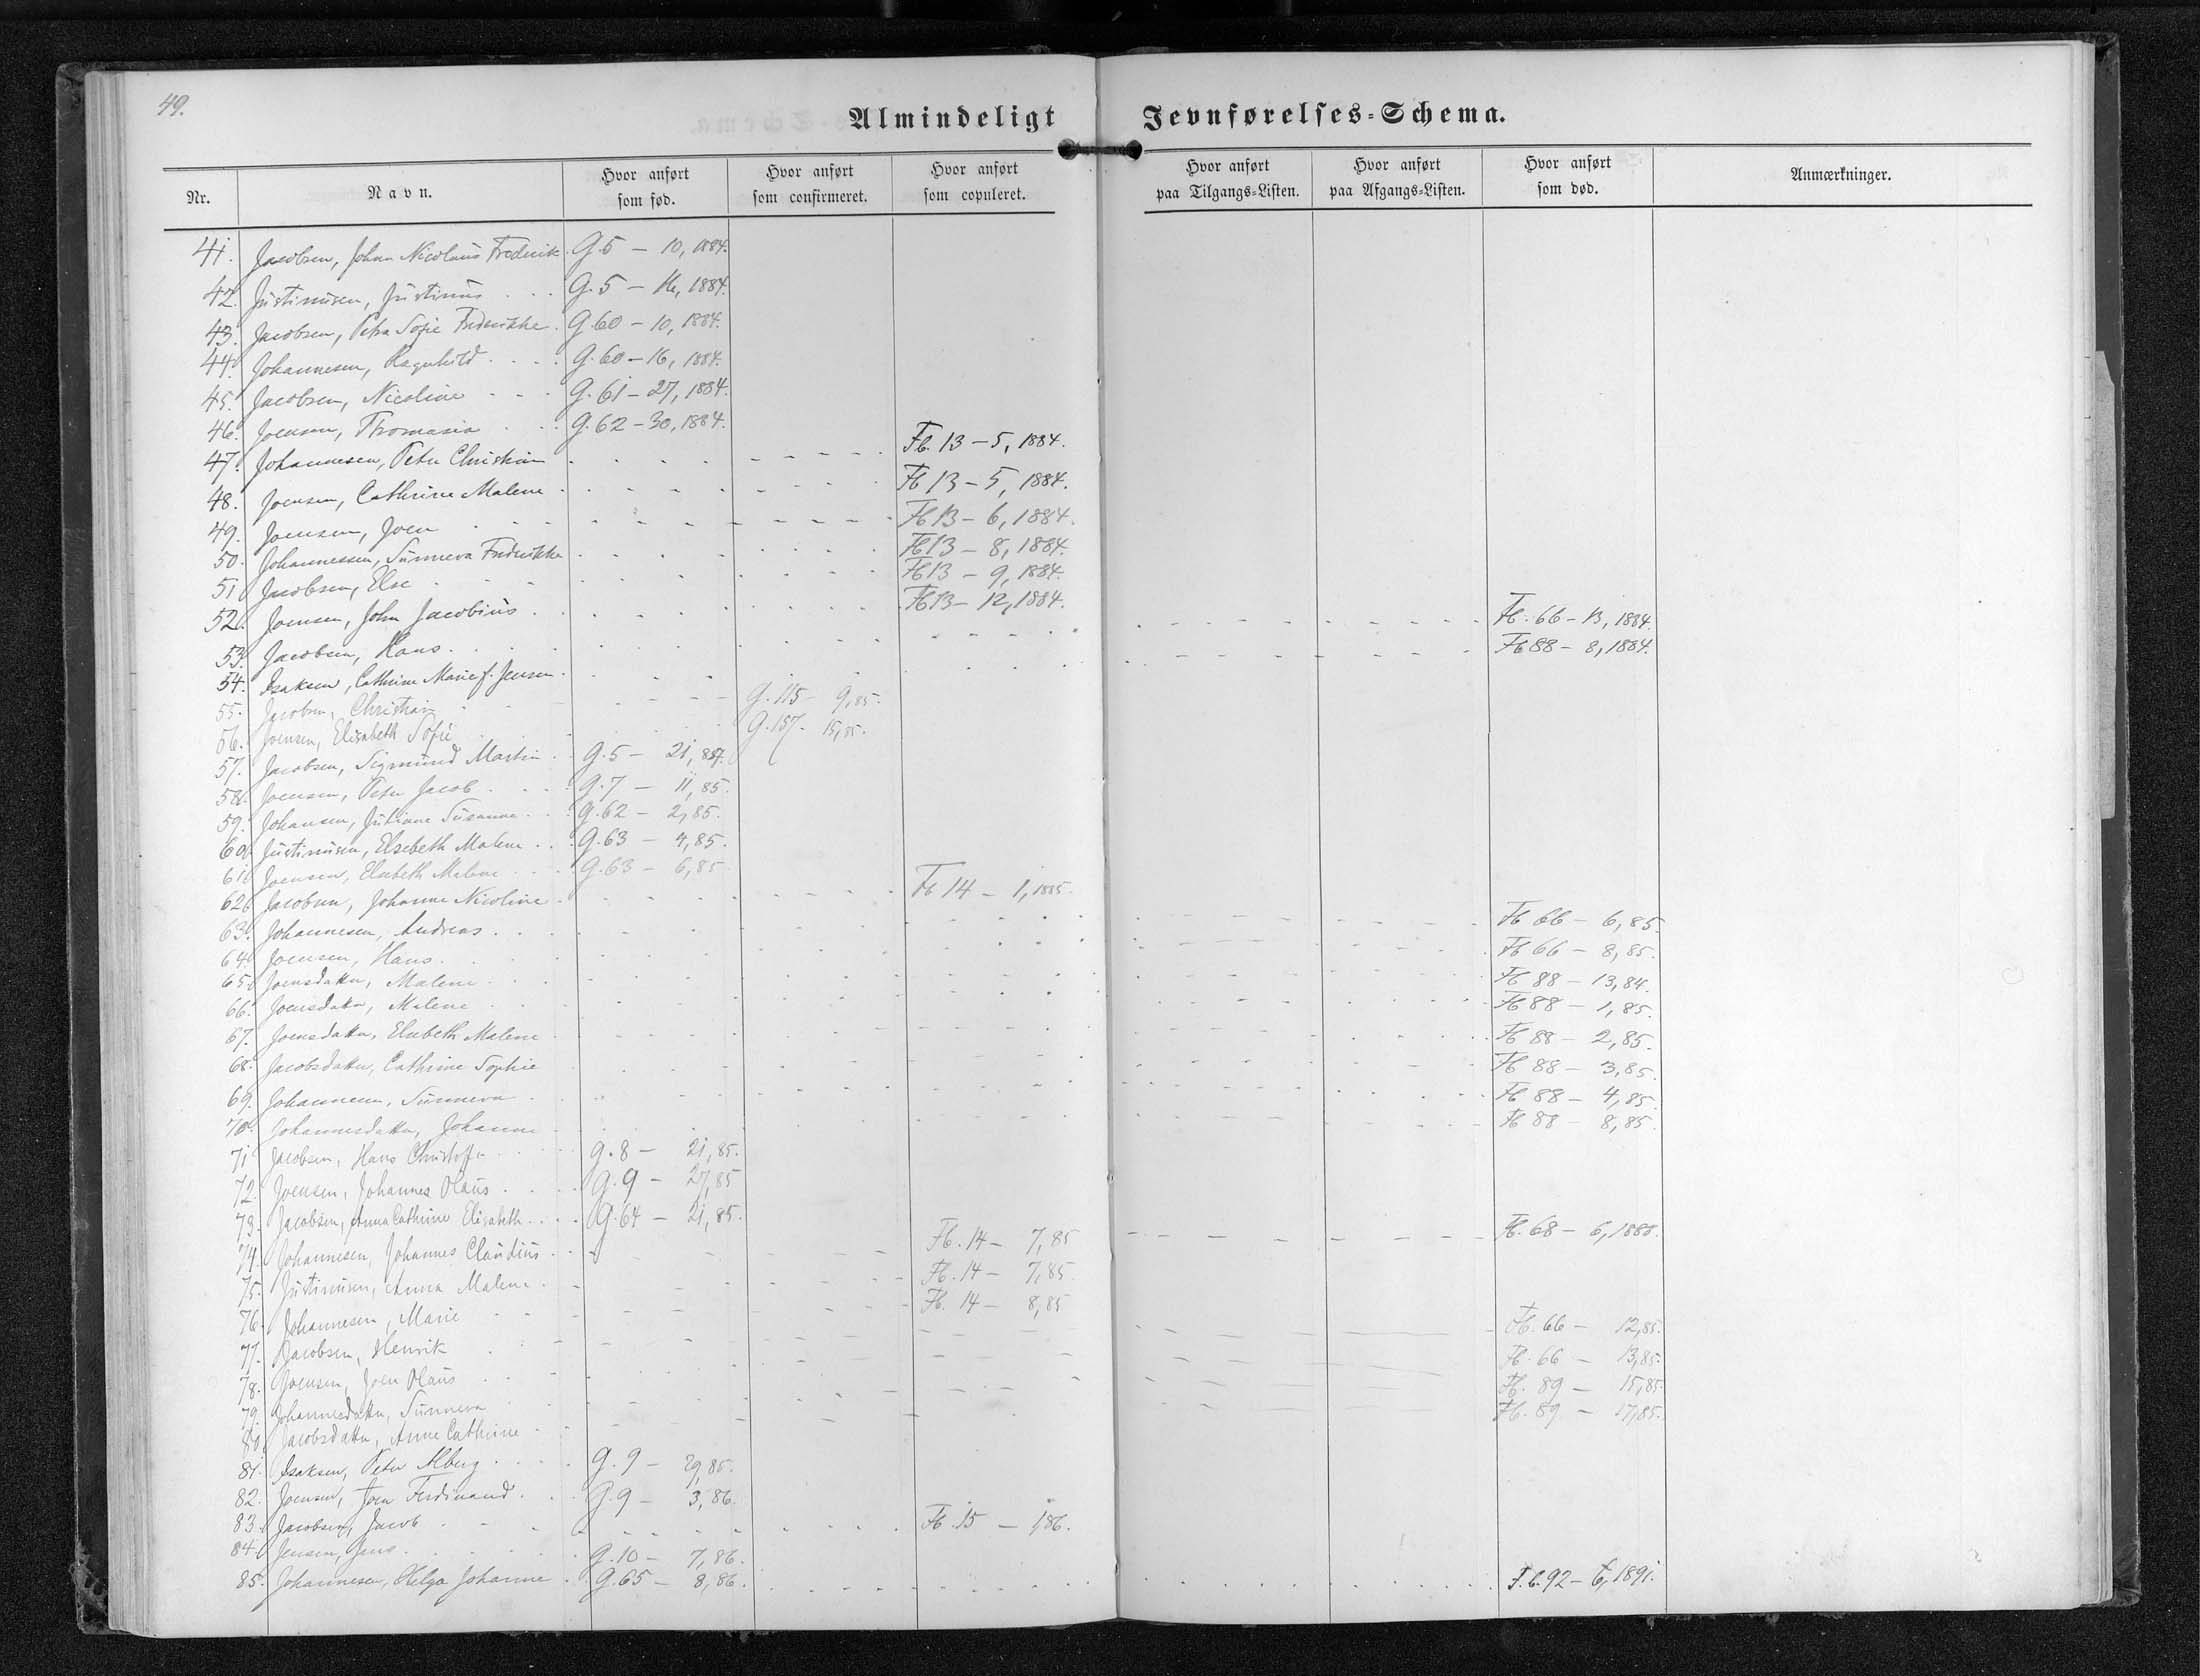 49.
Almindeligt Jevnførelses-Schema.
Nr. Navn. Hvor anført som fød. Hvor anført som confirmeret. Hvor anført som copuleret. Hvor anført paa Tilgangs-Listen. Hvor anført paa Afgangs-Listen. Hvor anført som død. Anmærkninger.
41. Jacobsen, Johan Nicolaus Frederik G. 5 — 10, 1884.
42. Justinusen, Justinus G. 5 — 16, 1884.
43. Jacobsen, Petra Sofie Frederikke G. 60 — 10, 1884.
44. Johannesen, Ragnhild G. 60 — 16, 1884.
45. Jacobsen, Nicoline G. 61 — 27, 1884.
46. Joensen, Thomasia G. 62 — 30, 1884.
47. Johannesen, Peter Christian Fb. 13 — 5, 1884.
48. Joensen, Cathrine Malene Fb 13 — 5, 1884.
49. Joensen, Joen Fb 13 — 6, 1884.
50. Johannessen, Sunneva Frederikke Fb 13 — 8, 1884.
51 Jacobsen, Else Fb 13 — 9, 1884.
52. Joensen, John Jacobius Fb 13 — 12, 1884.
53. Jacobsen, Hans Fb. 66 — 13, 1884.
54. Isaksen, Cathrine Marie f. Jensen Fb 88 — 8, 1884.
55. Jacobsen, Christian G. 115 — 9, 85.
56. Joensen, Elisabeth Sofie G. 157 — 15, 85.
57. Jacobsen, Sigmund Martin G. 5 — 21, 84.
58. Joensen, Peter Jacob G. 7 — 11, 85.
59. Johansen, Juliane Susanna G. 62 — 2, 85.
60. Justinusen, Elsebeth Malene G. 63 — 4, 85.
61. Joensen, Elsebeth Malene G. 63 — 6, 85
62. Jacobsen, Johanne Nicoline Fb 14 — 1, 1885.
63. Johannesen, Andreas Fb 66 — 6, 85.
64. Joensen, Hans Fb 66 — 8, 85.
65. Joensdatter, Malene Fb 88 — 13, 84.
66. Joensdatter, Malene Fb 88 — 1, 85.
67. Joensdatter, Elsebeth Malene Fb 88 — 2, 85.
68. Jacobsdatter, Cathrine Sophie Fb 88 — 3, 85.
69. Johannesen, Sunneva Fb 88 — 4, 85.
70. Johannesdatter, Johanne Fb 88 — 8, 85.
71 Jacobsen, Hans Christoffer G. 8 — 21, 85.
72. Joensen, Johannes Olaus G. 9 — 27, 85
73. Jacobsen, Anna Cathrine Elisabeth G. 64 — 21, 85.
74. Johannesen, Johannes Claudius Fb. 14 — 7, 85 Fb. 68 — 6, 1888.
75. Justinusen, Anna Malene Fb. 14 — 7, 85
76. Johannesen, Marie Fb. 14 — 8, 85
77. Jacobsen, Henrik Fb. 66 — 12, 85.
78. Joensen, Joen Olaus Fb. 66 — 13, 85.
79. Johannesdatter, Sunneva Fb. 89 — 15, 85.
80. Jacobsdatter, Anne Cathrine Fb. 89 — 17, 85.
81. Isaksen, Peter Alberg G. 9 — 29, 85.
82. Joensen, Joen Ferdinand G. 9 — 3, 86.
83. Jacobsen, Jacob Fb. 15 — 1, 86.
84. Jensen, Jens G. 10 — 7, 86.
85. Johannesen, Helga Johanne G. 65 — 8, 86. F. b. 92 — 6, 1891.